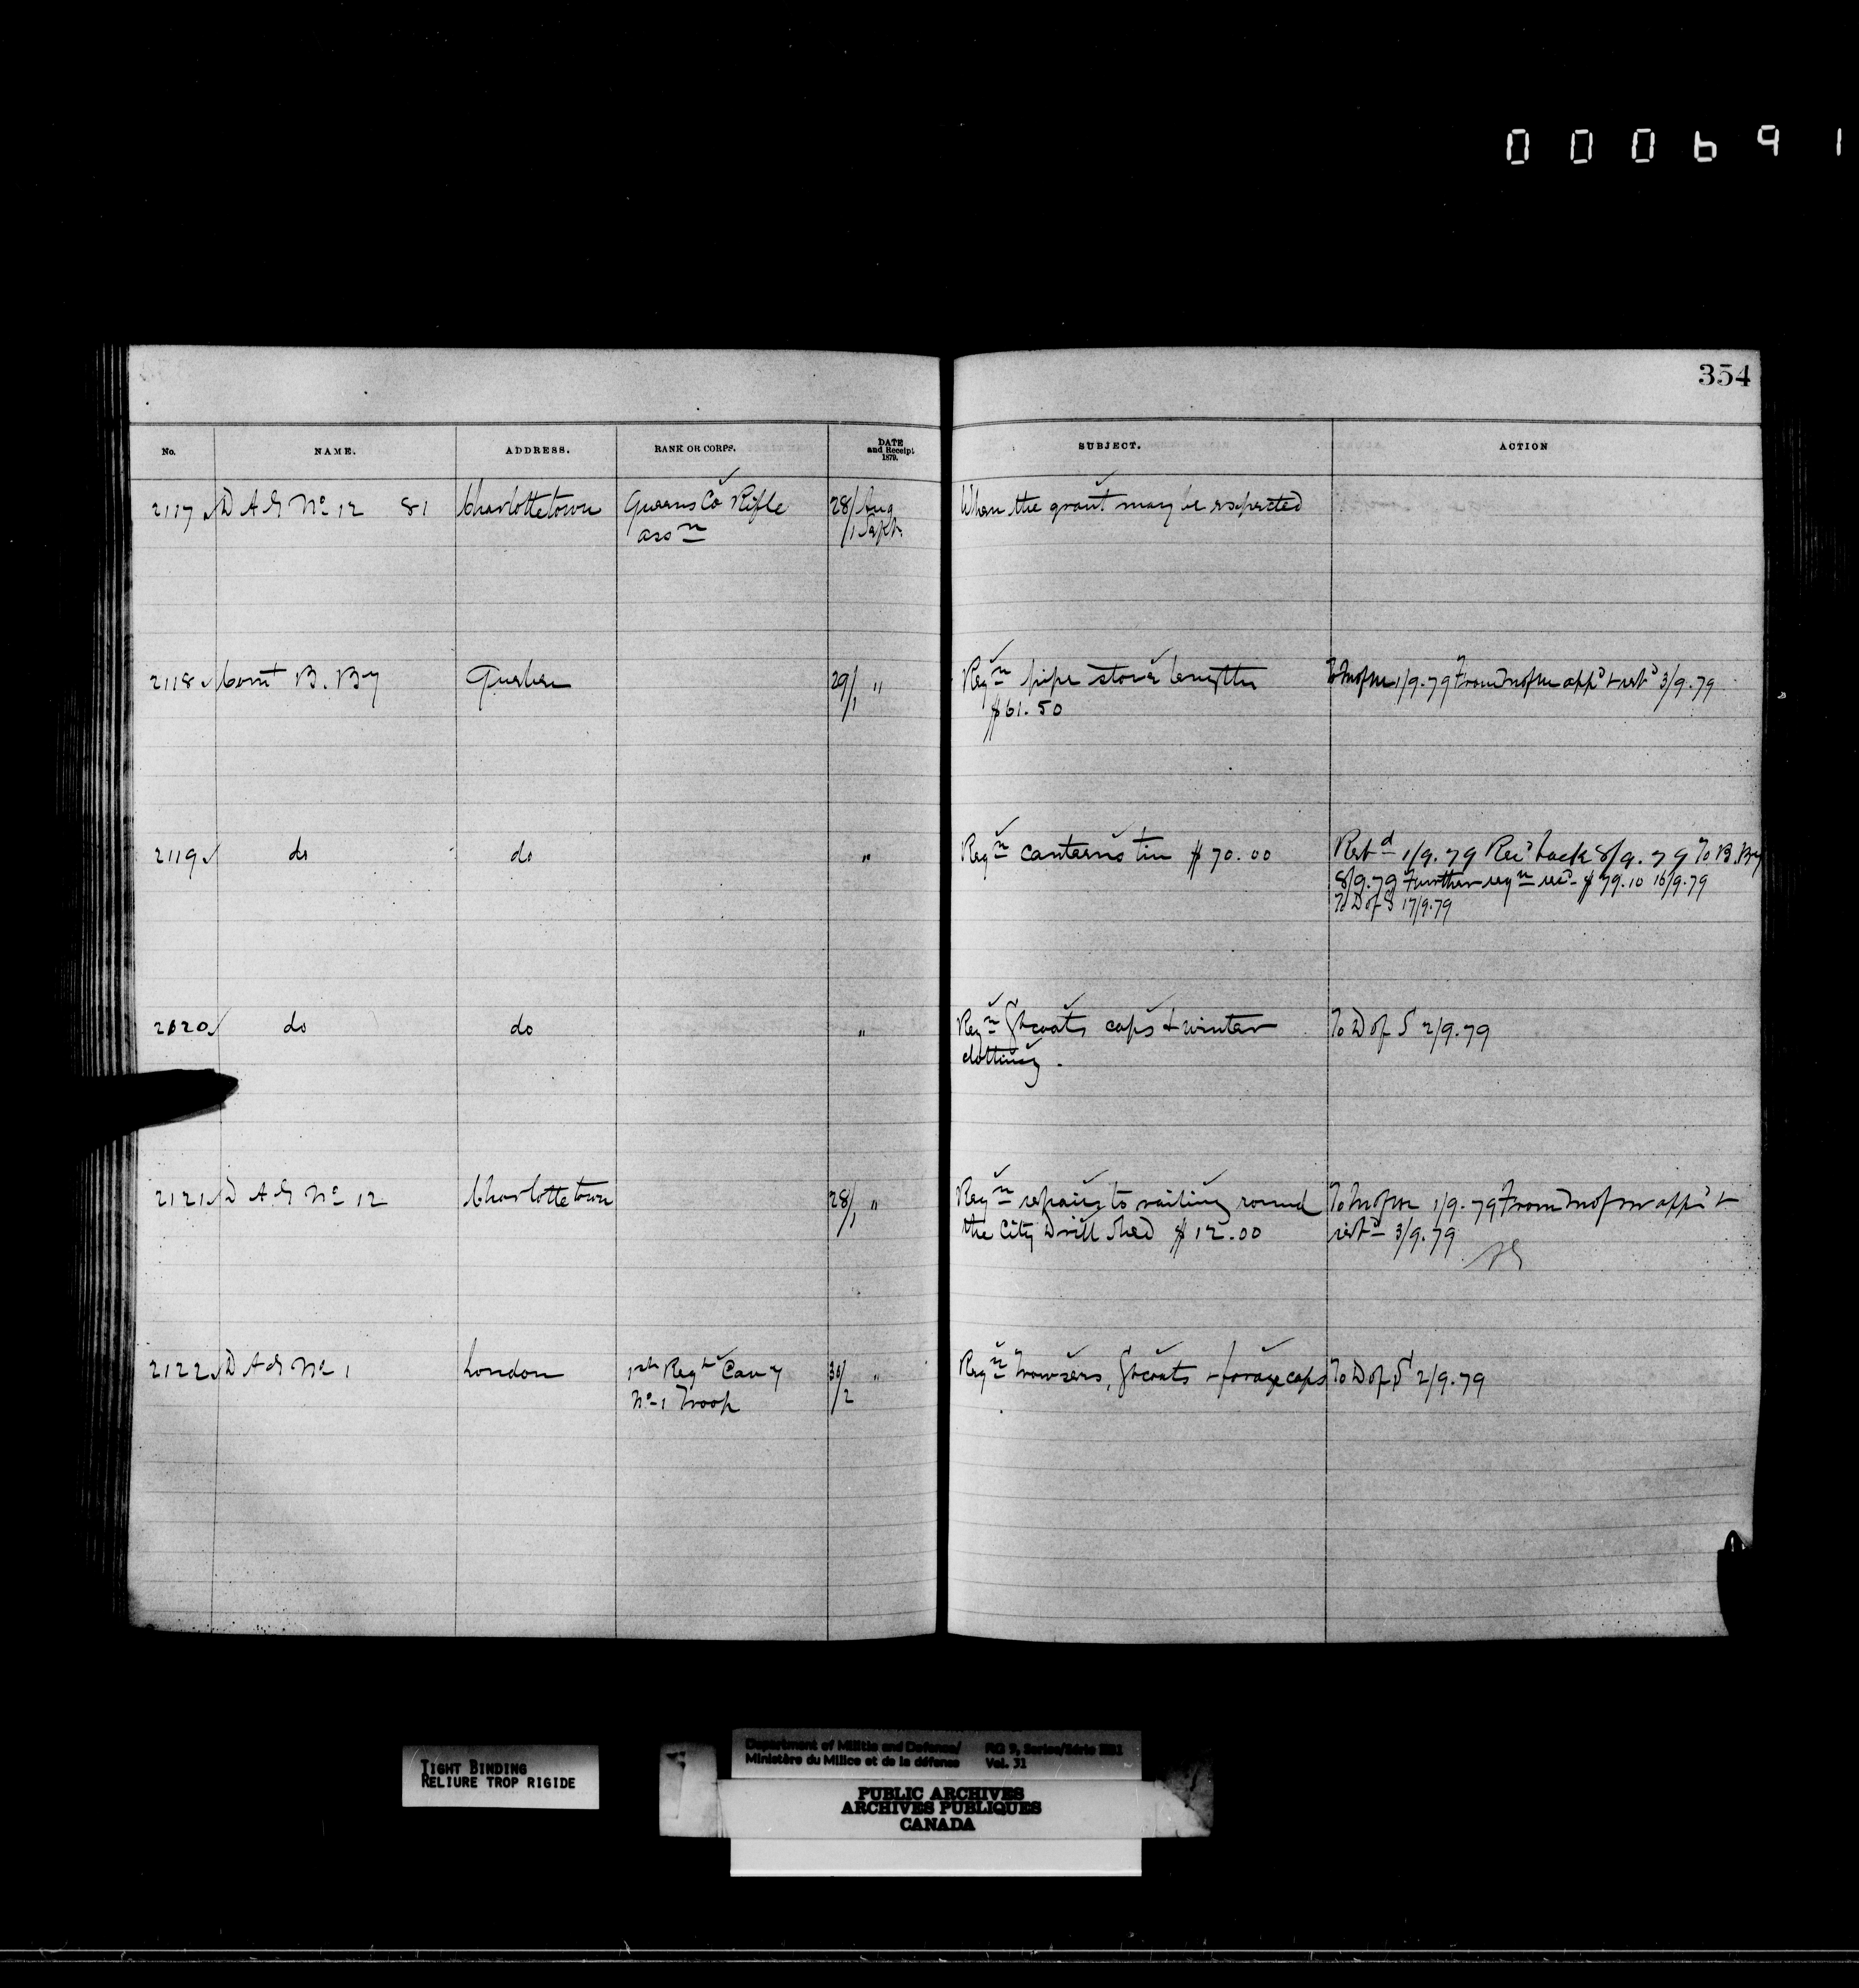 000691
354
No. NAME. ADDRESS. RANK OR CORPS. DATE and Receipt 1879. SUBJECT. ACTION
2117 D A G No 12 81 Charlottetown Queens Co Rifle 28/ Aug When the grant may be expected
assn /1 Sept.
2118 Comt B. By Quebec 29/1 " Reqn pipe stove lengths To M of M 1/9.79 From M of M appd & retd 3/9.79
$61.50
2119 do do " Reqn canteens tin $70.00 Retd 1/9.79 Recd back 8/9.79 To B. By
8/9.79 Further reqn recd $79.10 16/9.79
To D of S 17/9.79
2120 do do " Reqn Gtcoats caps & winter To D of S 2/9.79
clothing.
2121 D A G No 12 Charlottetown 28/1 " Reqn repairs to railing round To M of M 1/9.79 From M of M appd &
the City Drill Shed $12.00 retd 3/9.79
2122 D A G No 1 London 1st Regt Cavy 30/2 " Reqn Trowsers, Gtcoats & forage caps To D of S 2/9.79
No 1 Troop
TIGHT BINDING
RELIURE TROP RIGIDE
Department of Militia and Defence/ RG 9, Series/Série IIB1
Ministère du Milice et de la défense Vol. 31
PUBLIC ARCHIVES
ARCHIVES PUBLIQUES
CANADA